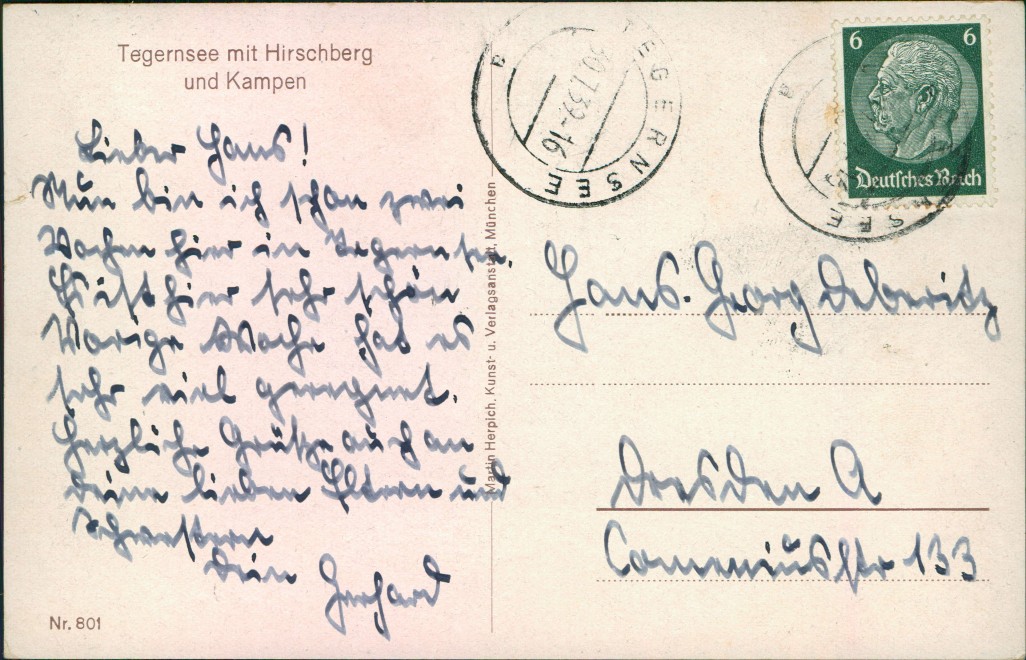 Tegernsee mit Hirschberg
und Kampen
Lieber Hans!
Nun bin ich schon zwei
Wochen hier in Tegernsee.
Es ist hier sehr schön
Vorige Woche hat es
sehr viel geregnet.
Herzliche Grüße auch an
Deine lieben Eltern und
Schwestern
Dein Gerhard
Nr. 801
Martin Herpich, Kunst- u. Verlagsanstalt, München
TEGERNSEE
a
.7.39-16
SEE
a
6 6
Deutsches Reich
Hans-Georg Deberitz
Dresden A
Comeniusstr 133